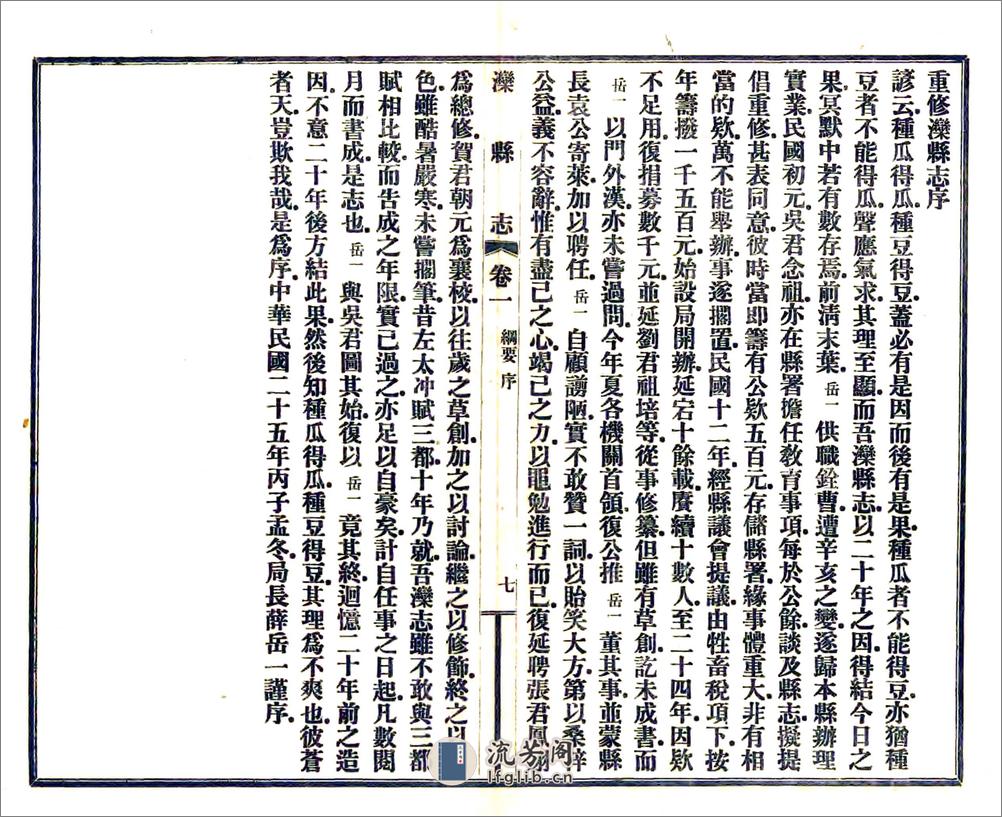 重修灤縣志序
諺云種瓜得瓜種豆得豆蓋必有是因而後有是果種瓜者不能得豆亦猶種
豆者不能得瓜聲應氣求其理至顯而吾灤縣志以二十年之因得結今日之
果冥默中若有數存焉前清末葉岳一供職銓曹遭辛亥之變遂歸本縣辦理
實業民國初元吳君念祖亦在縣署擔任教育事項每於公餘談及縣志擬提
倡重修甚表同意彼時當即籌有公欵五百元存儲縣署緣事體重大非有相
當的欵萬不能舉辦事遂擱置民國十二年經縣議會提議由牲畜稅項下按
年籌撥一千五百元始設局開辦延宕十餘載賡續十數人至二十四年因欵
不足用復捐募數千元並延劉君祖培等從事修纂但雖有草創訖未成書而
岳一以門外漢亦未嘗過問今年夏各機關首領復公推岳一董其事並蒙縣
長袁公寄萊加以聘任岳一自顧謭陋實不敢贊一詞以貽笑大方第以桑梓
公益義不容辭惟有盡己之心竭己之力以黽勉進行而已復延聘張君鳳翔
灤縣志 卷一 綱要 序 七
爲總修賀君朝元爲襄校以往歲之草創加之以討論繼之以修飾終之以
色雖酷暑嚴寒未嘗擱筆昔左太冲賦三都十年乃就吾灤志雖不敢與三都
賦相比較而告成之年限實已過之亦足以自豪矣計自任事之日起凡數閱
月而書成是志也岳一與吳君圖其始復以岳一竟其終迴憶二十年前之造
因不意二十年後方結此果然後知種瓜得瓜種豆得豆其理爲不爽也彼蒼
者天豈欺我哉是爲序中華民國二十五年丙子孟冬局長薛岳一謹序
流芳阁
lfglib.cn